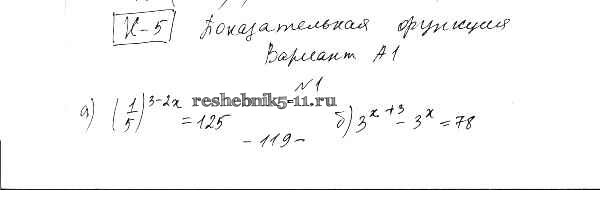 К-5 Показательная функция
Вариант А1
№1
а) (1/5)^(3-2x) = 125 б) 3^(x+3) - 3^x = 78
reshebnik5-11.ru
- 119 -